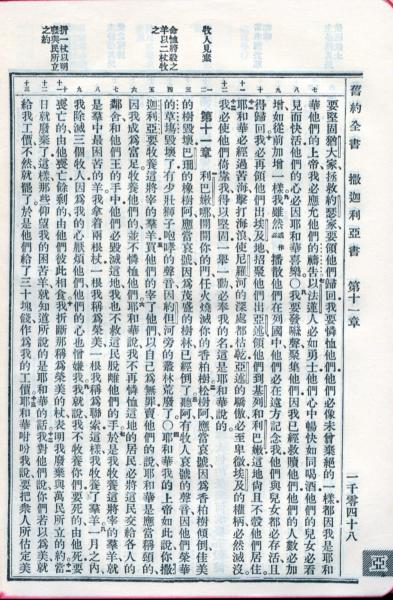 舊約全書 撒迦利亞書 第十一章 一千零四十八
亞
要堅固猶大家拯救約瑟家要領他們歸回我要憐恤他們他們必像未曾棄絕的一樣都因我是耶和
七 華他們的上帝我必應允他們的禱告以法蓮人必如勇士他們心中暢快如同喝酒他們的兒女必看
八 見而快活他們的心必因耶和華喜樂〇我要發嘶聲聚集他們因我已經救贖他們他們的人數必加
九 增如從前加增一樣我雖然播散他們在列國中他們必在遠方記念我他們與兒女都必存活且
十 得歸回我必再領他們出埃及地招聚他們出亞述領他們到基列和利巴嫩這地尚且不彀他們居住
十一 耶和華必經過苦海擊打海浪使尼羅河的深處都枯乾亞述的驕傲必至卑微埃及的權柄必然滅沒
十二 我必使他們倚靠我得以堅固一舉一動必奉我的名這是耶和華說的
第十一章 利巴嫩哪開開你的門任火燒滅你的香柏樹松樹阿應當哀號因為香柏樹傾倒佳美
的樹毀壞巴珊的橡樹阿應當哀號因為茂盛的樹林已經倒了聽阿有牧人哀號的聲音因他們榮華
牧人見棄
的草場毀壞了有少壯獅子咆哮的聲音因約但河旁的叢林荒廢了〇耶和華我的上帝如此說你撒
命恤將殺之羊以二杖牧之
迦利亞要牧養這將宰的羣羊買他們的宰了他們以自己為無罪賣他們的說耶和華是應當稱頌的
因我成為富足牧養他們的並不憐恤他們耶和華說我不再憐恤這地的居民必將這民交給各人的
鄰舍和他們王的手中他們必毀滅這地我也不救這民脫離他們的手於是我牧養這將宰的羣羊就
是羣中最困苦的羊我拿着兩根杖一根我稱為榮美一根我稱為聯索這樣我牧養了羣羊一月之內
我除滅三個牧人因為我的心厭煩他們他們的心也憎嫌我我就說我不牧養你們要死的由他死要
折一杖以明廢與民所立之約
喪亡的由他喪亡餘剩的由他們彼此相食我折斷那稱為榮美的杖表明我廢棄與萬民所立的約當
日就廢棄了這樣那些仰望我的困苦羊就知道所說的是耶和華的話我對他們說你們若以為美就
給我工價不然就罷了於是他們給了三十塊錢作為我的工價耶和華吩咐我說要把衆人所估定美